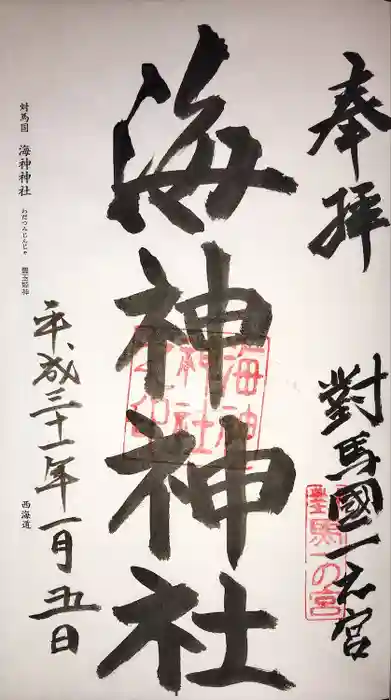 奉拝
對馬國一の宮
對馬一の宮
海神神社
海神
神社
之印
平成三十一年一月五日
対馬国 海神神社 わだつみじんじゃ
西海道